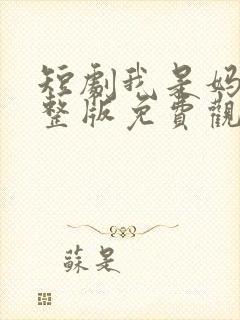 短劇我是媽
整版免費觀
蘇是